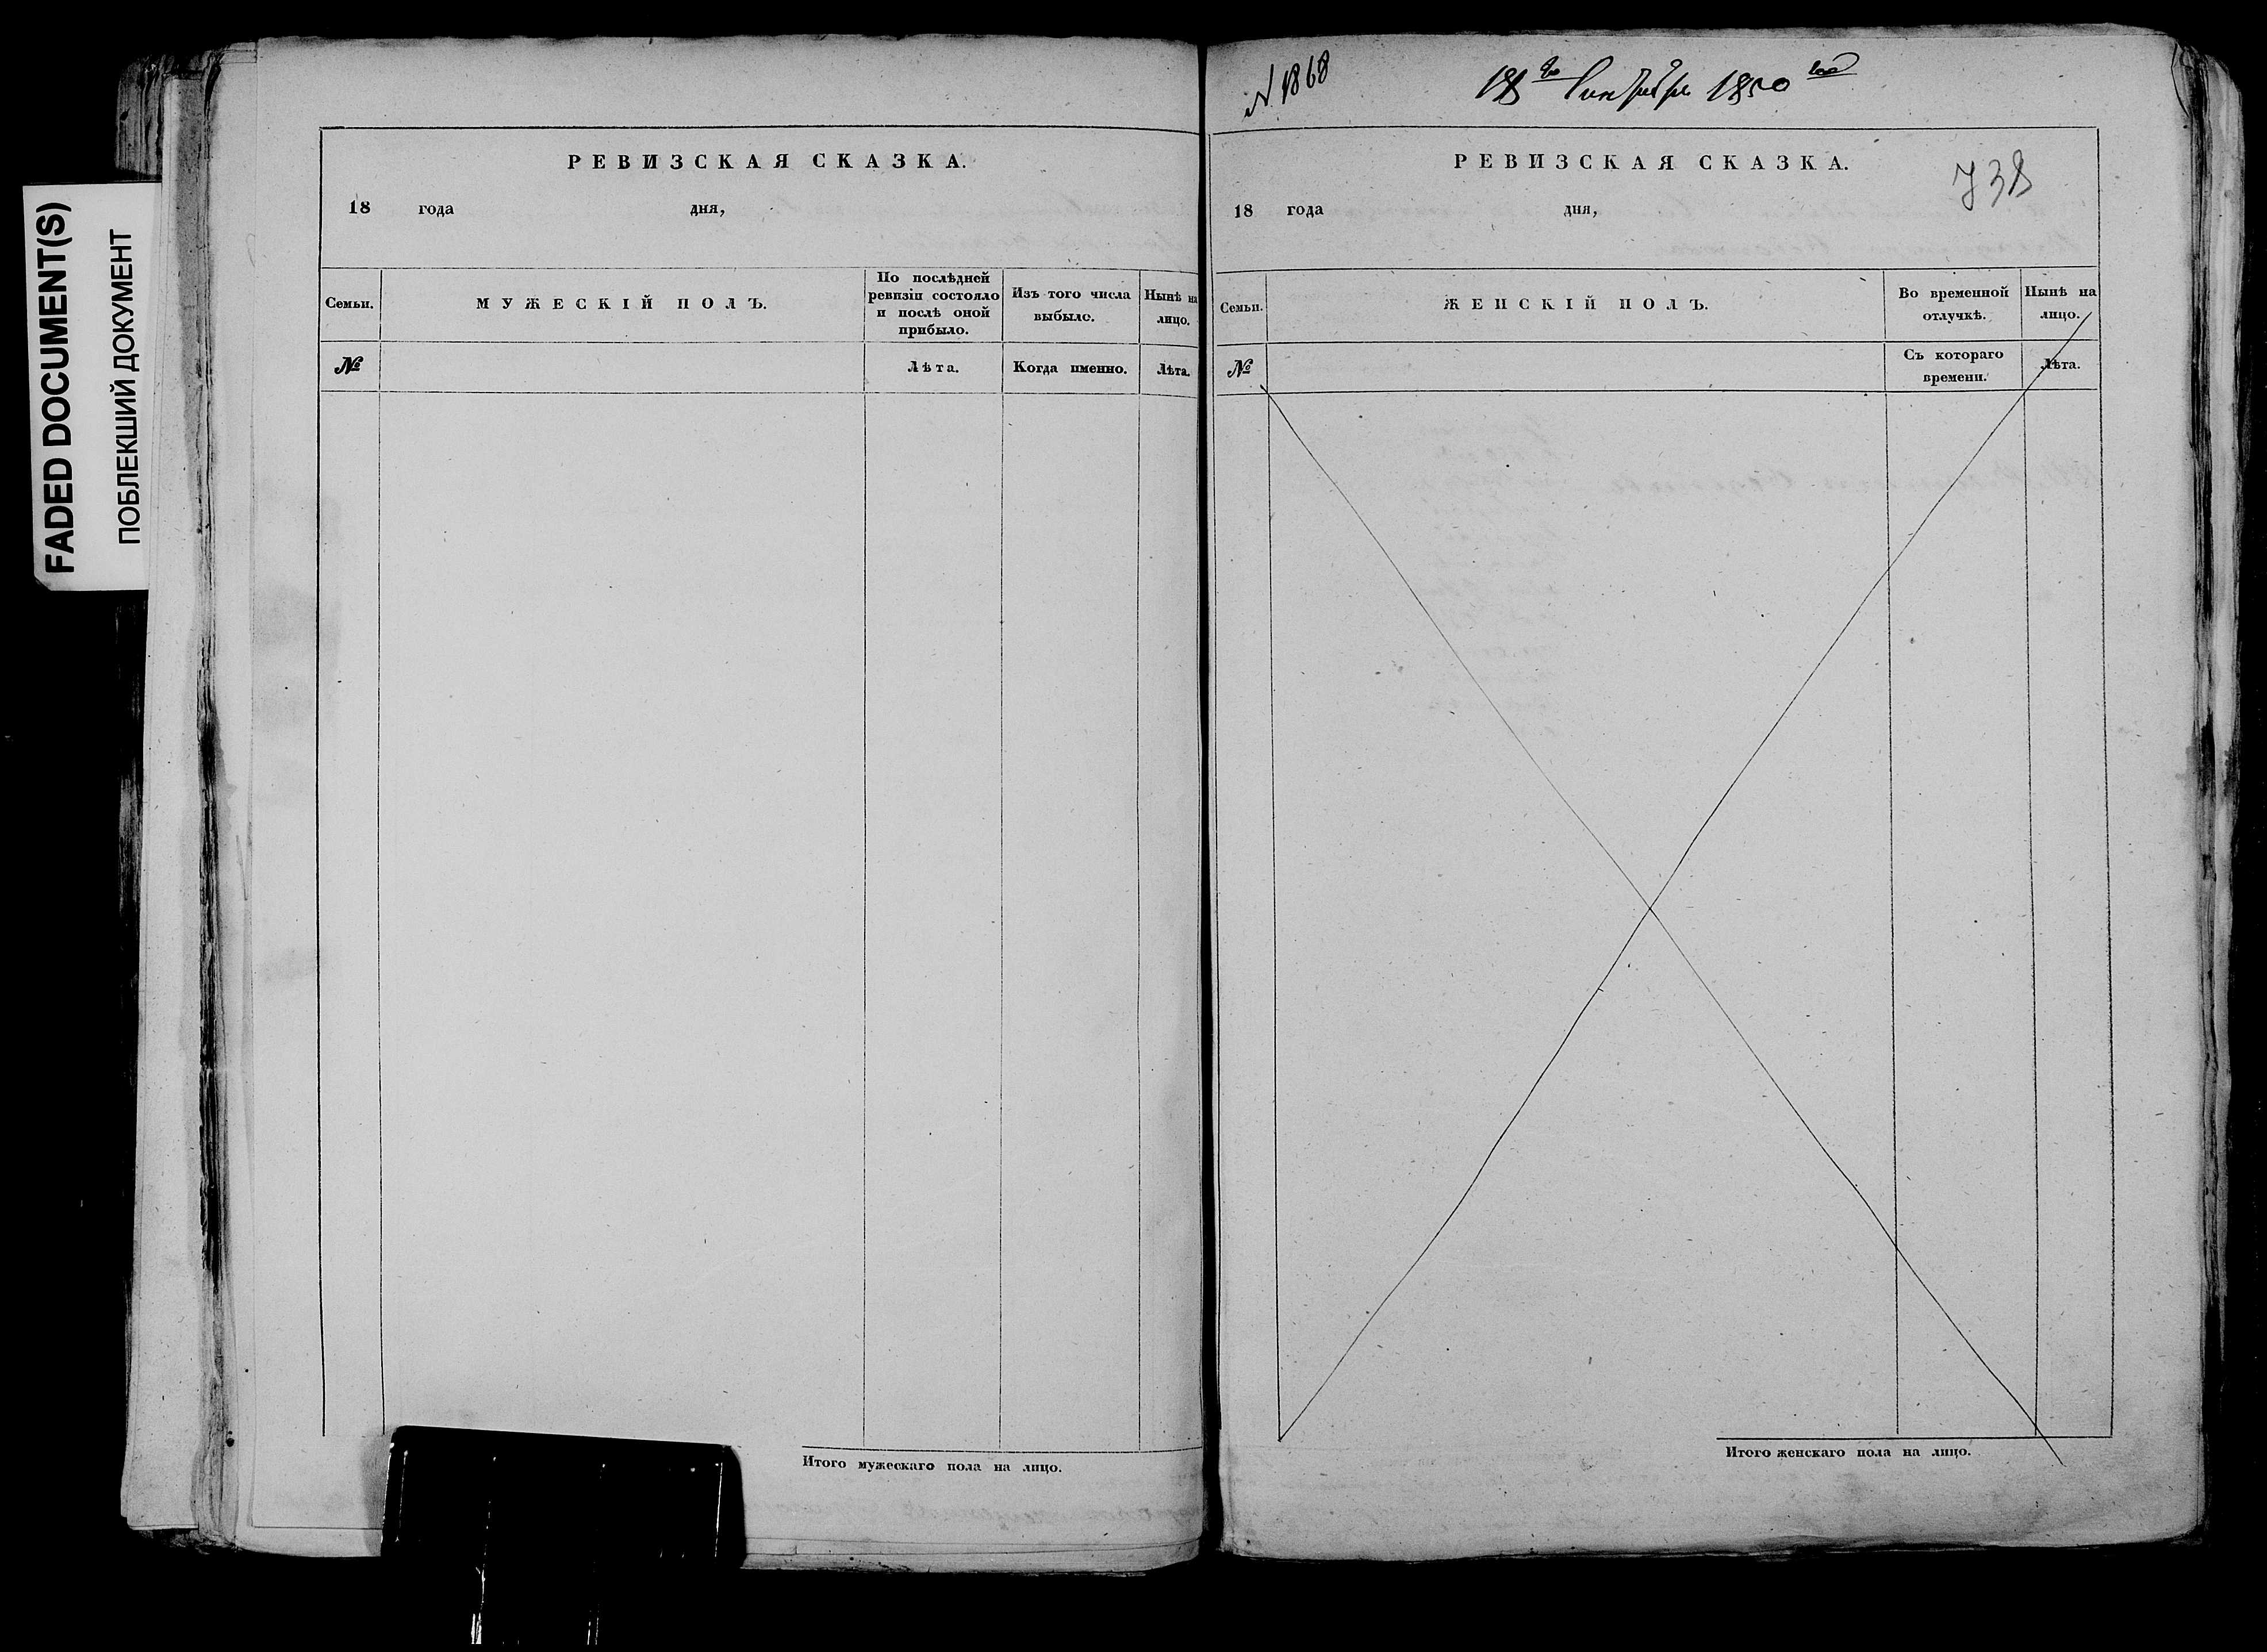 FADED DOCUMENT(S)
ПОБЛЕКШИЙ ДОКУМЕНТ
РЕВИЗСКАЯ СКАЗКА.
18 года дня,
Семьи.
МУЖЕСКІЙ ПОЛЪ.
По послѣдней
ревизіи состояло
и послѣ оной
прибыло.
Изъ того числа
выбыло.
Нынѣ на
лицо.
№
Лѣта.
Когда именно.
Лѣта.
Итого мужескаго пола на лицо.
N 1868
18го Сентября 1850 года
РЕВИЗСКАЯ СКАЗКА.
738
18 года дня,
Семьи.
ЖЕНСКІЙ ПОЛЪ.
Во временной
отлучкѣ.
Нынѣ на
лицо.
№
Съ котораго
времени.
Лѣта.
Итого женскаго пола на лицо.